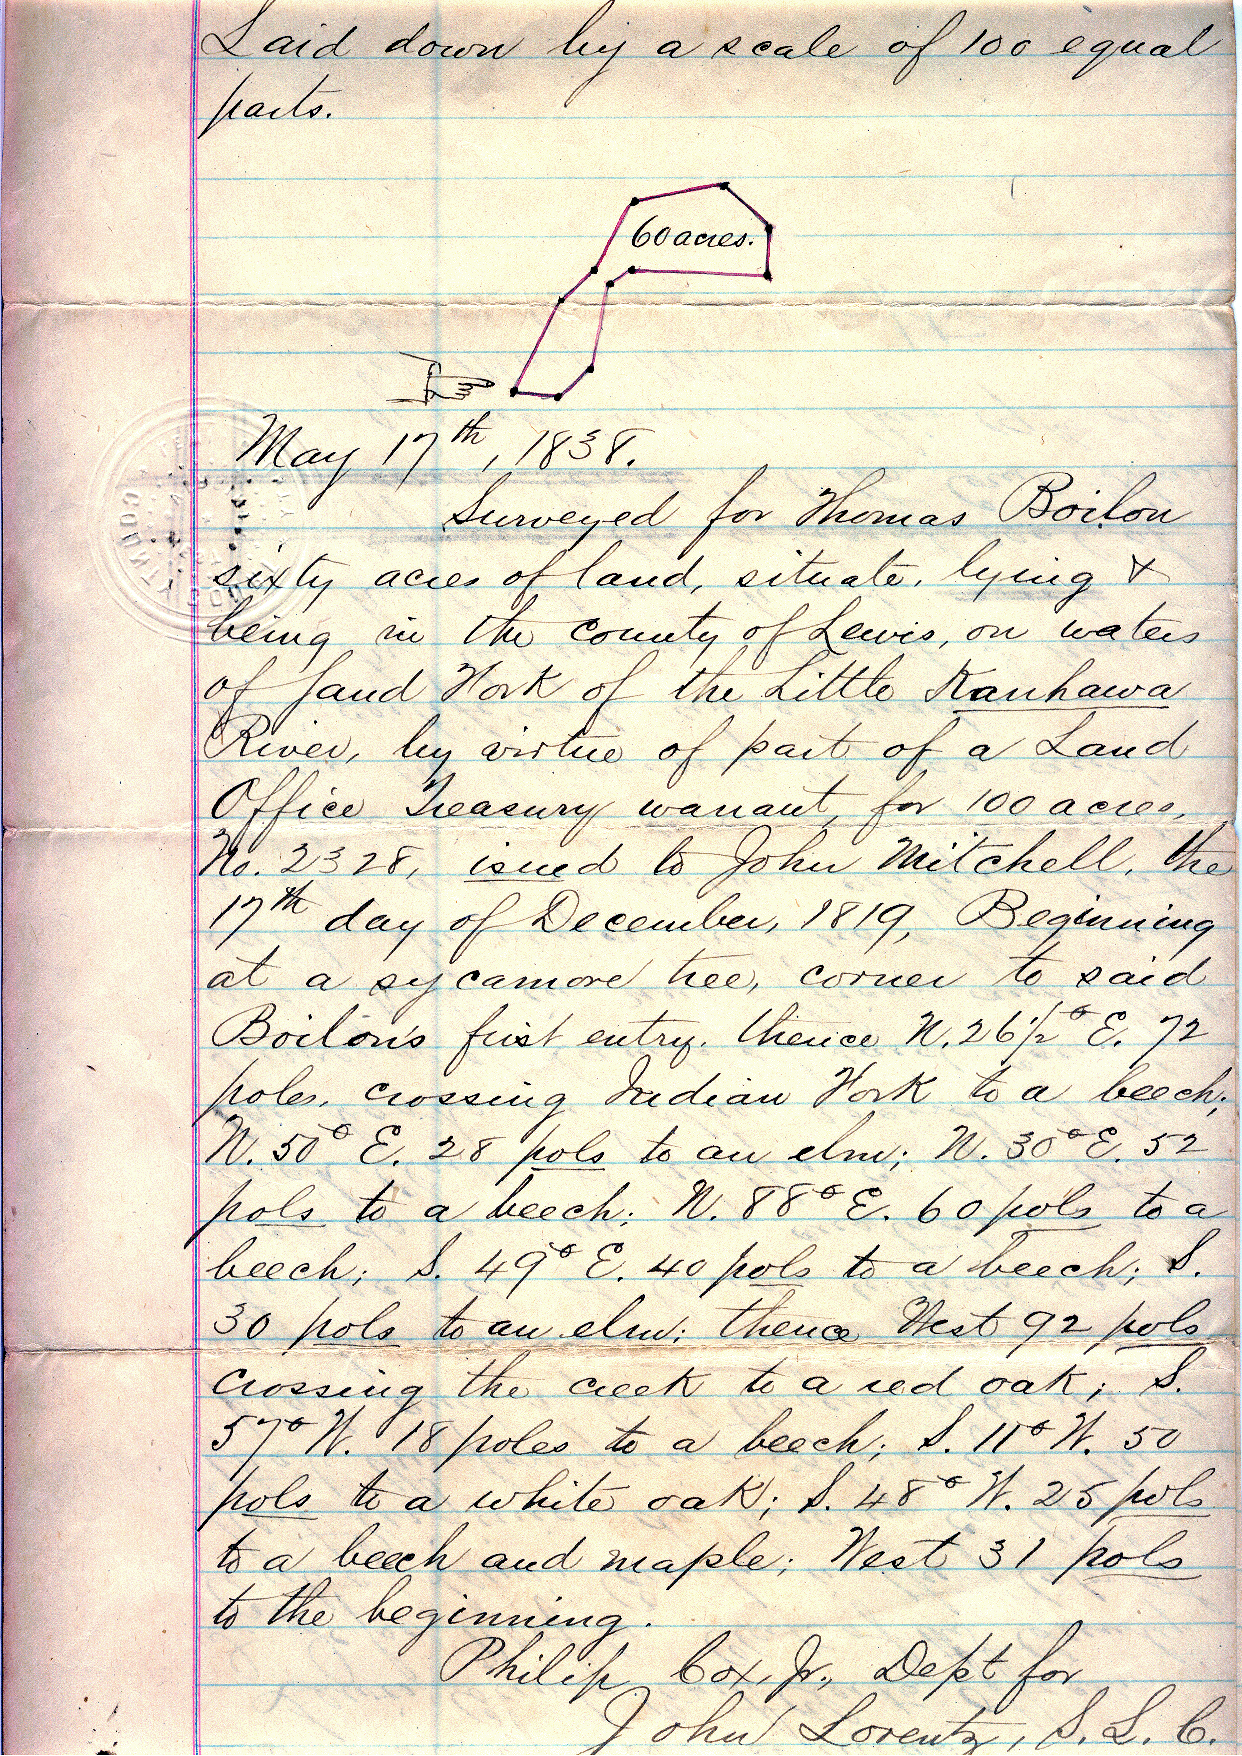 Laid down by a scale of 100 equal
parts.
60 acres.
May 17th, 1838.
Surveyed for Thomas Boilon
sixty acres of land, situate, lying &
being in the county of Lewis, on waters
of Sand Fork of the Little Kanhawa
River, by virtue of part of a Land
Office Treasury warrant, for 100 acres,
No. 2328, issued to John Mitchell, the
17th day of December, 1819, Beginning
at a sycamore tree, corner to said
Boilon's first entry. thence N. 26 1/2° E. 72
poles, crossing Indian Fork to a beech;
N. 50° E. 28 pols to an elm; N. 30° E. 52
pols to a beech; N. 88° E. 60 pols to a
beech; S. 49° E. 40 pols to a beech; S.
30 pols to an elm; thence West 92 pols
crossing the creek to a red oak; S.
57° W. 18 poles to a beech; S. 11° W. 50
pols to a white oak; S. 48° W. 25 pols
to a beech and maple; West 31 pols
to the beginning.
Philip Cox, Jr., Dept for
John Lorentz, S. L. C.